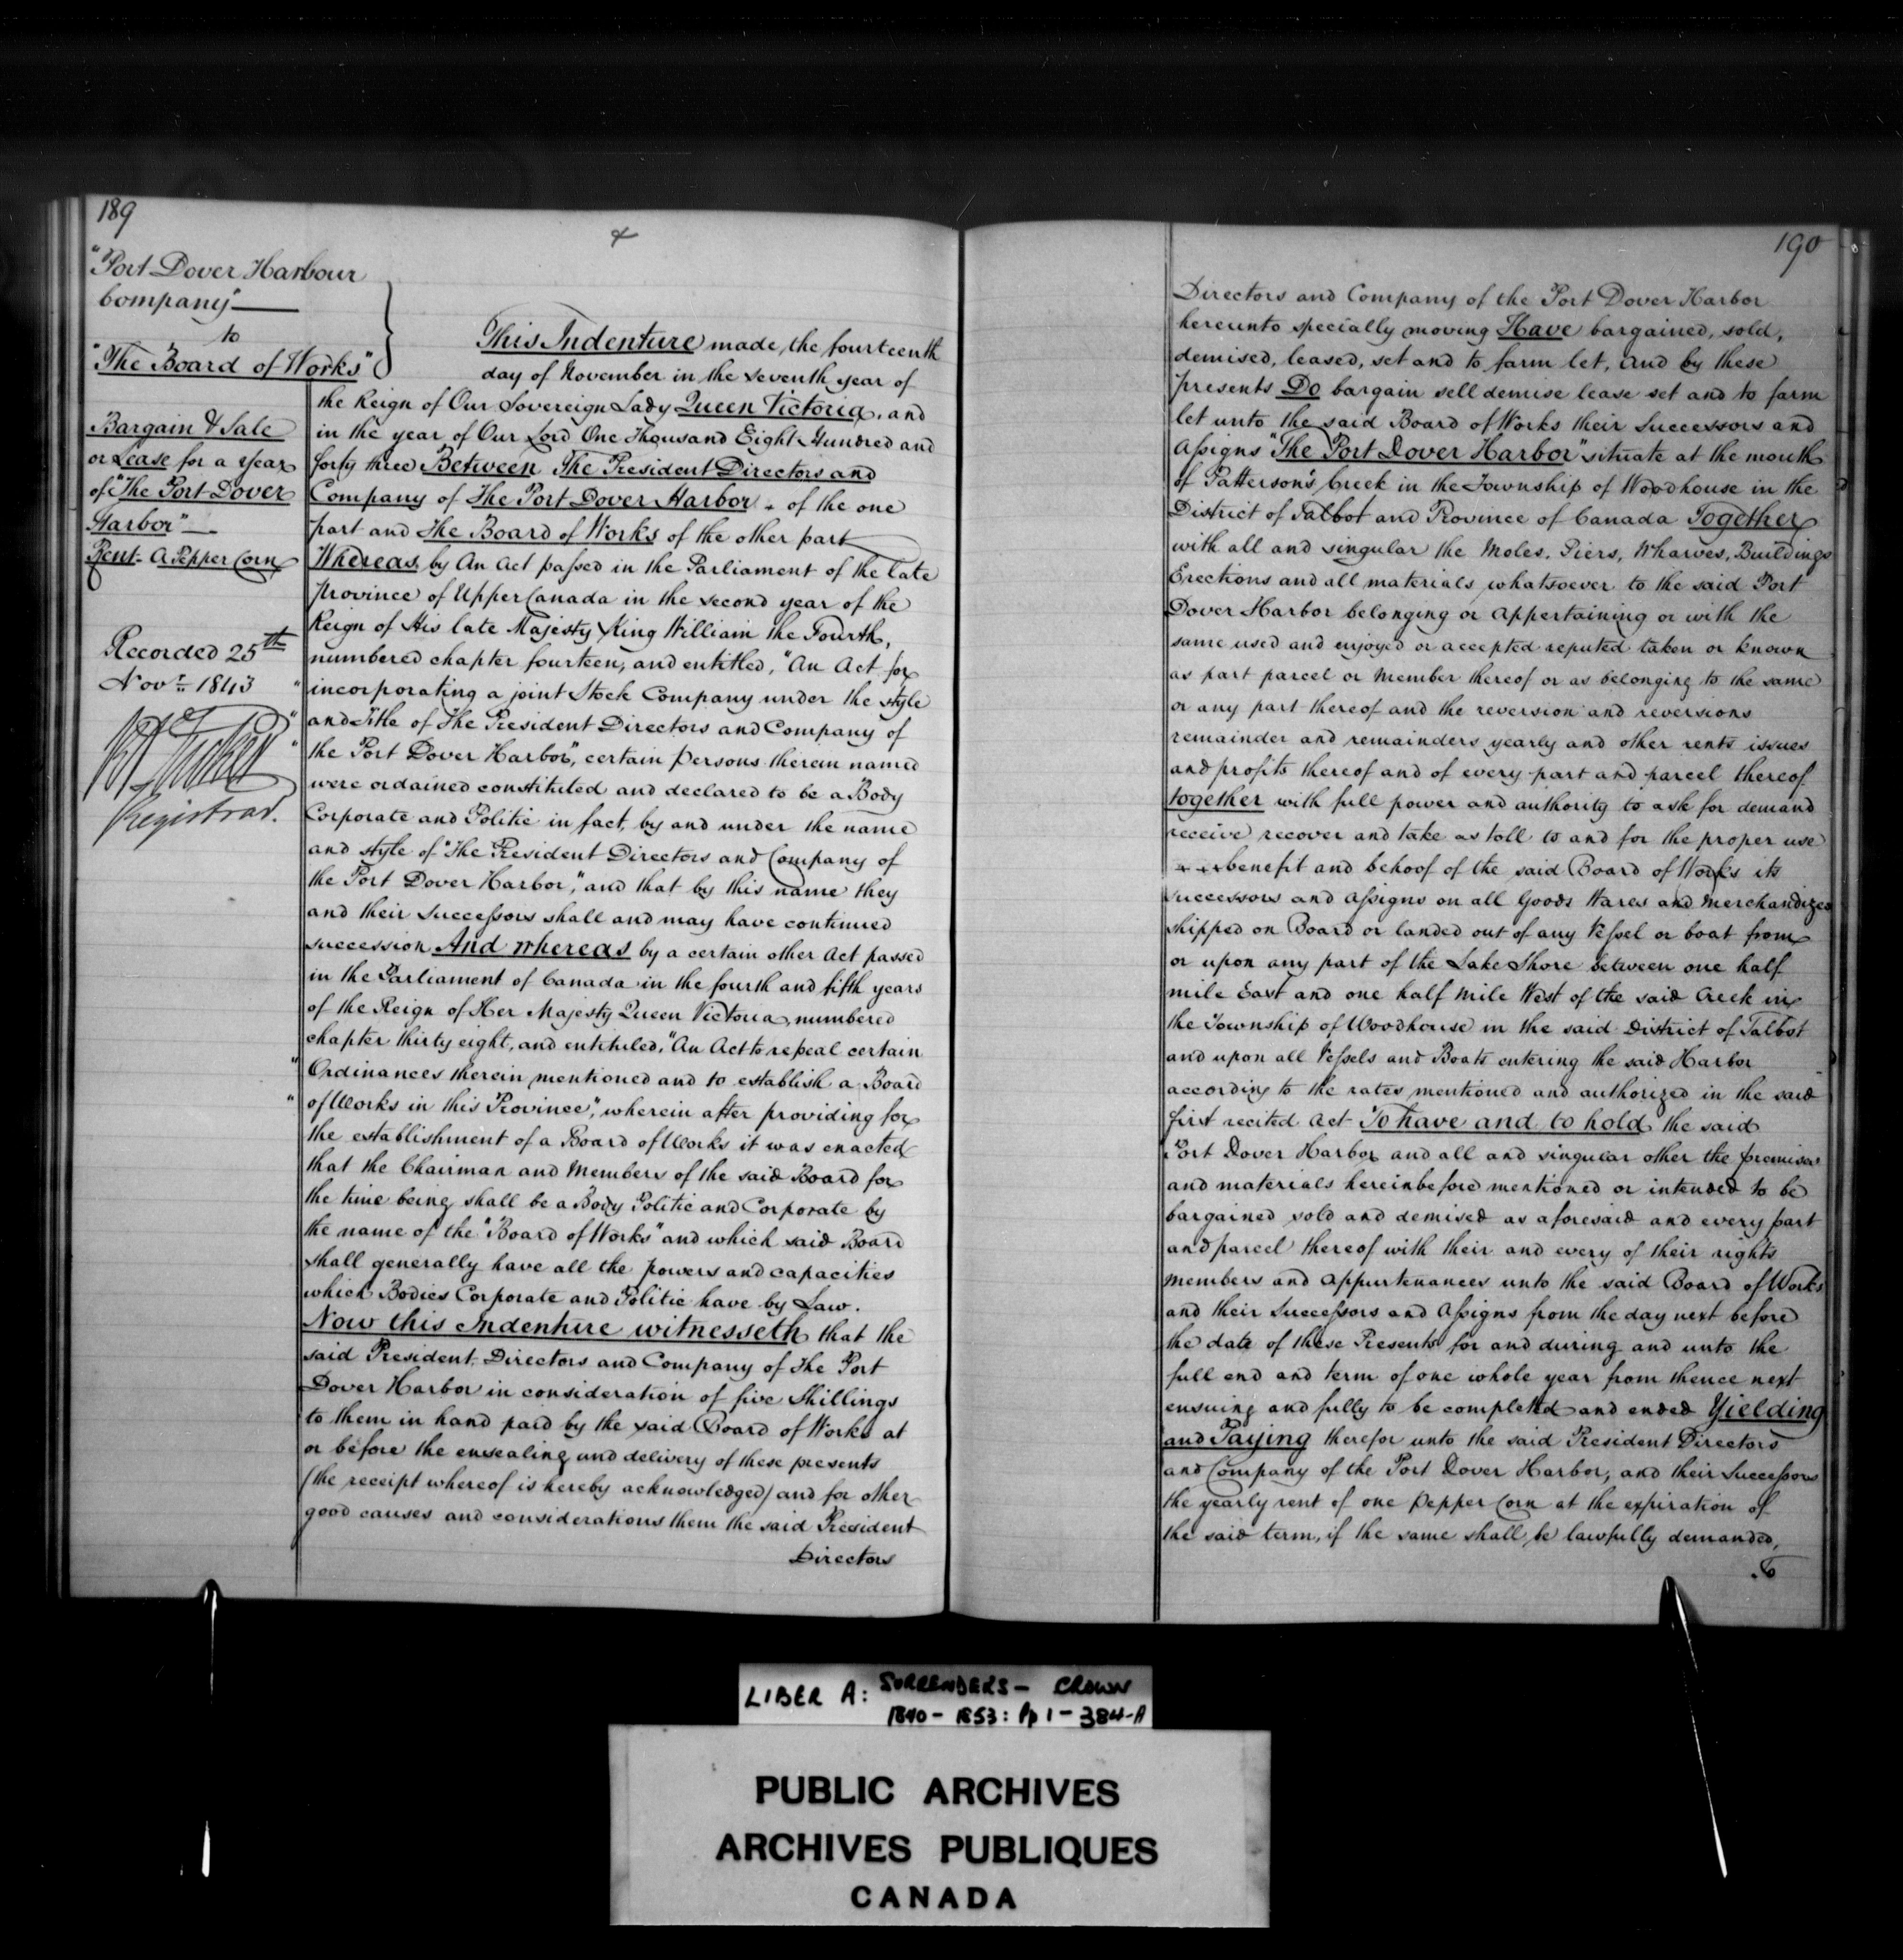 189
"Port Dover Harbour
Company"
to
"The Board of Works"
Bargain & Sale
or Lease for a year
of "The Port Dover
Harbor"
Rent. A Pepper Corn
Recorded 25th
Novr. 1843
Registrar.
This Indenture made, the fourteenth
day of November in the seventh year of
the Reign of Our Sovereign Lady Queen Victoria, and
in the year of Our Lord One Thousand Eight Hundred and
forty three Between The President Directors and
Company of The Port Dover Harbor. of the one
part and The Board of Works of the other part
Whereas, by An Act passed in the Parliament of the late
Province of Upper Canada in the second year of the
Reign of His late Majesty King William the Fourth,
numbered chapter fourteen, and entitled, "An Act for
" incorporating a joint Stock Company under the style
" and Title of The President Directors and Company of
" the Port Dover Harbor", certain Persons therein named
were ordained constituted and declared to be a Body
Corporate and Politic in fact, by and under the name
and style of "The President Directors and Company of
the Port Dover Harbor," and that by this name they
and their Successors shall and may have continued
succession And whereas by a certain other Act passed
in the Parliament of Canada in the fourth and fifth years
of the Reign of Her Majesty Queen Victoria, numbered
chapter thirty eight, and entituled, "An Act to repeal certain
" Ordinances therein mentioned and to establish a Board
" of Works in this Province", wherein after providing for
the establishment of a Board of Works it was enacted
that the Chairman and Members of the said Board for
the time being shall be a Body Politic and Corporate by
the name of the "Board of Works" and which said Board
shall generally have all the powers and capacities
which Bodies Corporate and Politic have by Law.
Now this Indenture witnesseth that the
said President Directors and Company of The Port
Dover Harbor in consideration of five Shillings
to them in hand paid by the said Board of Works at
or before the ensealing and delivery of these presents
(the receipt whereof is hereby acknowledged) and for other
good causes and considerations them the said President
Directors
190
Directors and Company of the Port Dover Harbor
hereunto specially moving Have bargained, sold,
demised, leased, set and to farm let, and by these
presents Do bargain sell demise lease set and to farm
let unto the said Board of Works their Successors and
Assigns "The Port Dover Harbor" situate at the mouth
of Patterson's Creek in the Township of Woodhouse in the
District of Talbot and Province of Canada Together
with all and singular the Moles, Piers, Wharves, Buildings
Erections and all materials whatsoever to the said Port
Dover Harbor belonging or appertaining or with the
same used and enjoyed or accepted reputed taken or known
as part parcel or member thereof or as belonging to the same
or any part thereof and the reversion and reversions
remainder and remainders yearly and other rents issues
and profits thereof and of every part and parcel thereof
together with full power and authority to ask for demand
receive recover and take as toll to and for the proper use
benefit and behoof of the said Board of Works its
successors and Assigns on all Goods Wares and Merchandizes
shipped on Board or landed out of any Vessel or boat from
or upon any part of the Lake Shore between one half
mile East and one half mile West of the said Creek in
the Township of Woodhouse in the said District of Talbot
and upon all Vessels and Boats entering the said Harbor
according to the rates mentioned and authorized in the said
first recited Act To have and to hold the said
Port Dover Harbor and all and singular other the premises
and materials hereinbefore mentioned or intended to be
bargained sold and demised as aforesaid and every part
and parcel thereof with their and every of their rights
members and appurtenances unto the said Board of Works
and their Successors and Assigns from the day next before
the date of these Presents for and during and unto the
full end and term of one whole year from thence next
ensuing and fully to be completed and ended Yielding
and Paying therefor unto the said President Directors
and Company of the Port Dover Harbor, and their Successors
the yearly rent of one Pepper Corn at the expiration of
the said term, if the same shall be lawfully demanded,
LIBER A: SURRENDERS - CROWN
1840 - 1853: Pp 1 - 384-A
PUBLIC ARCHIVES
ARCHIVES PUBLIQUES
CANADA